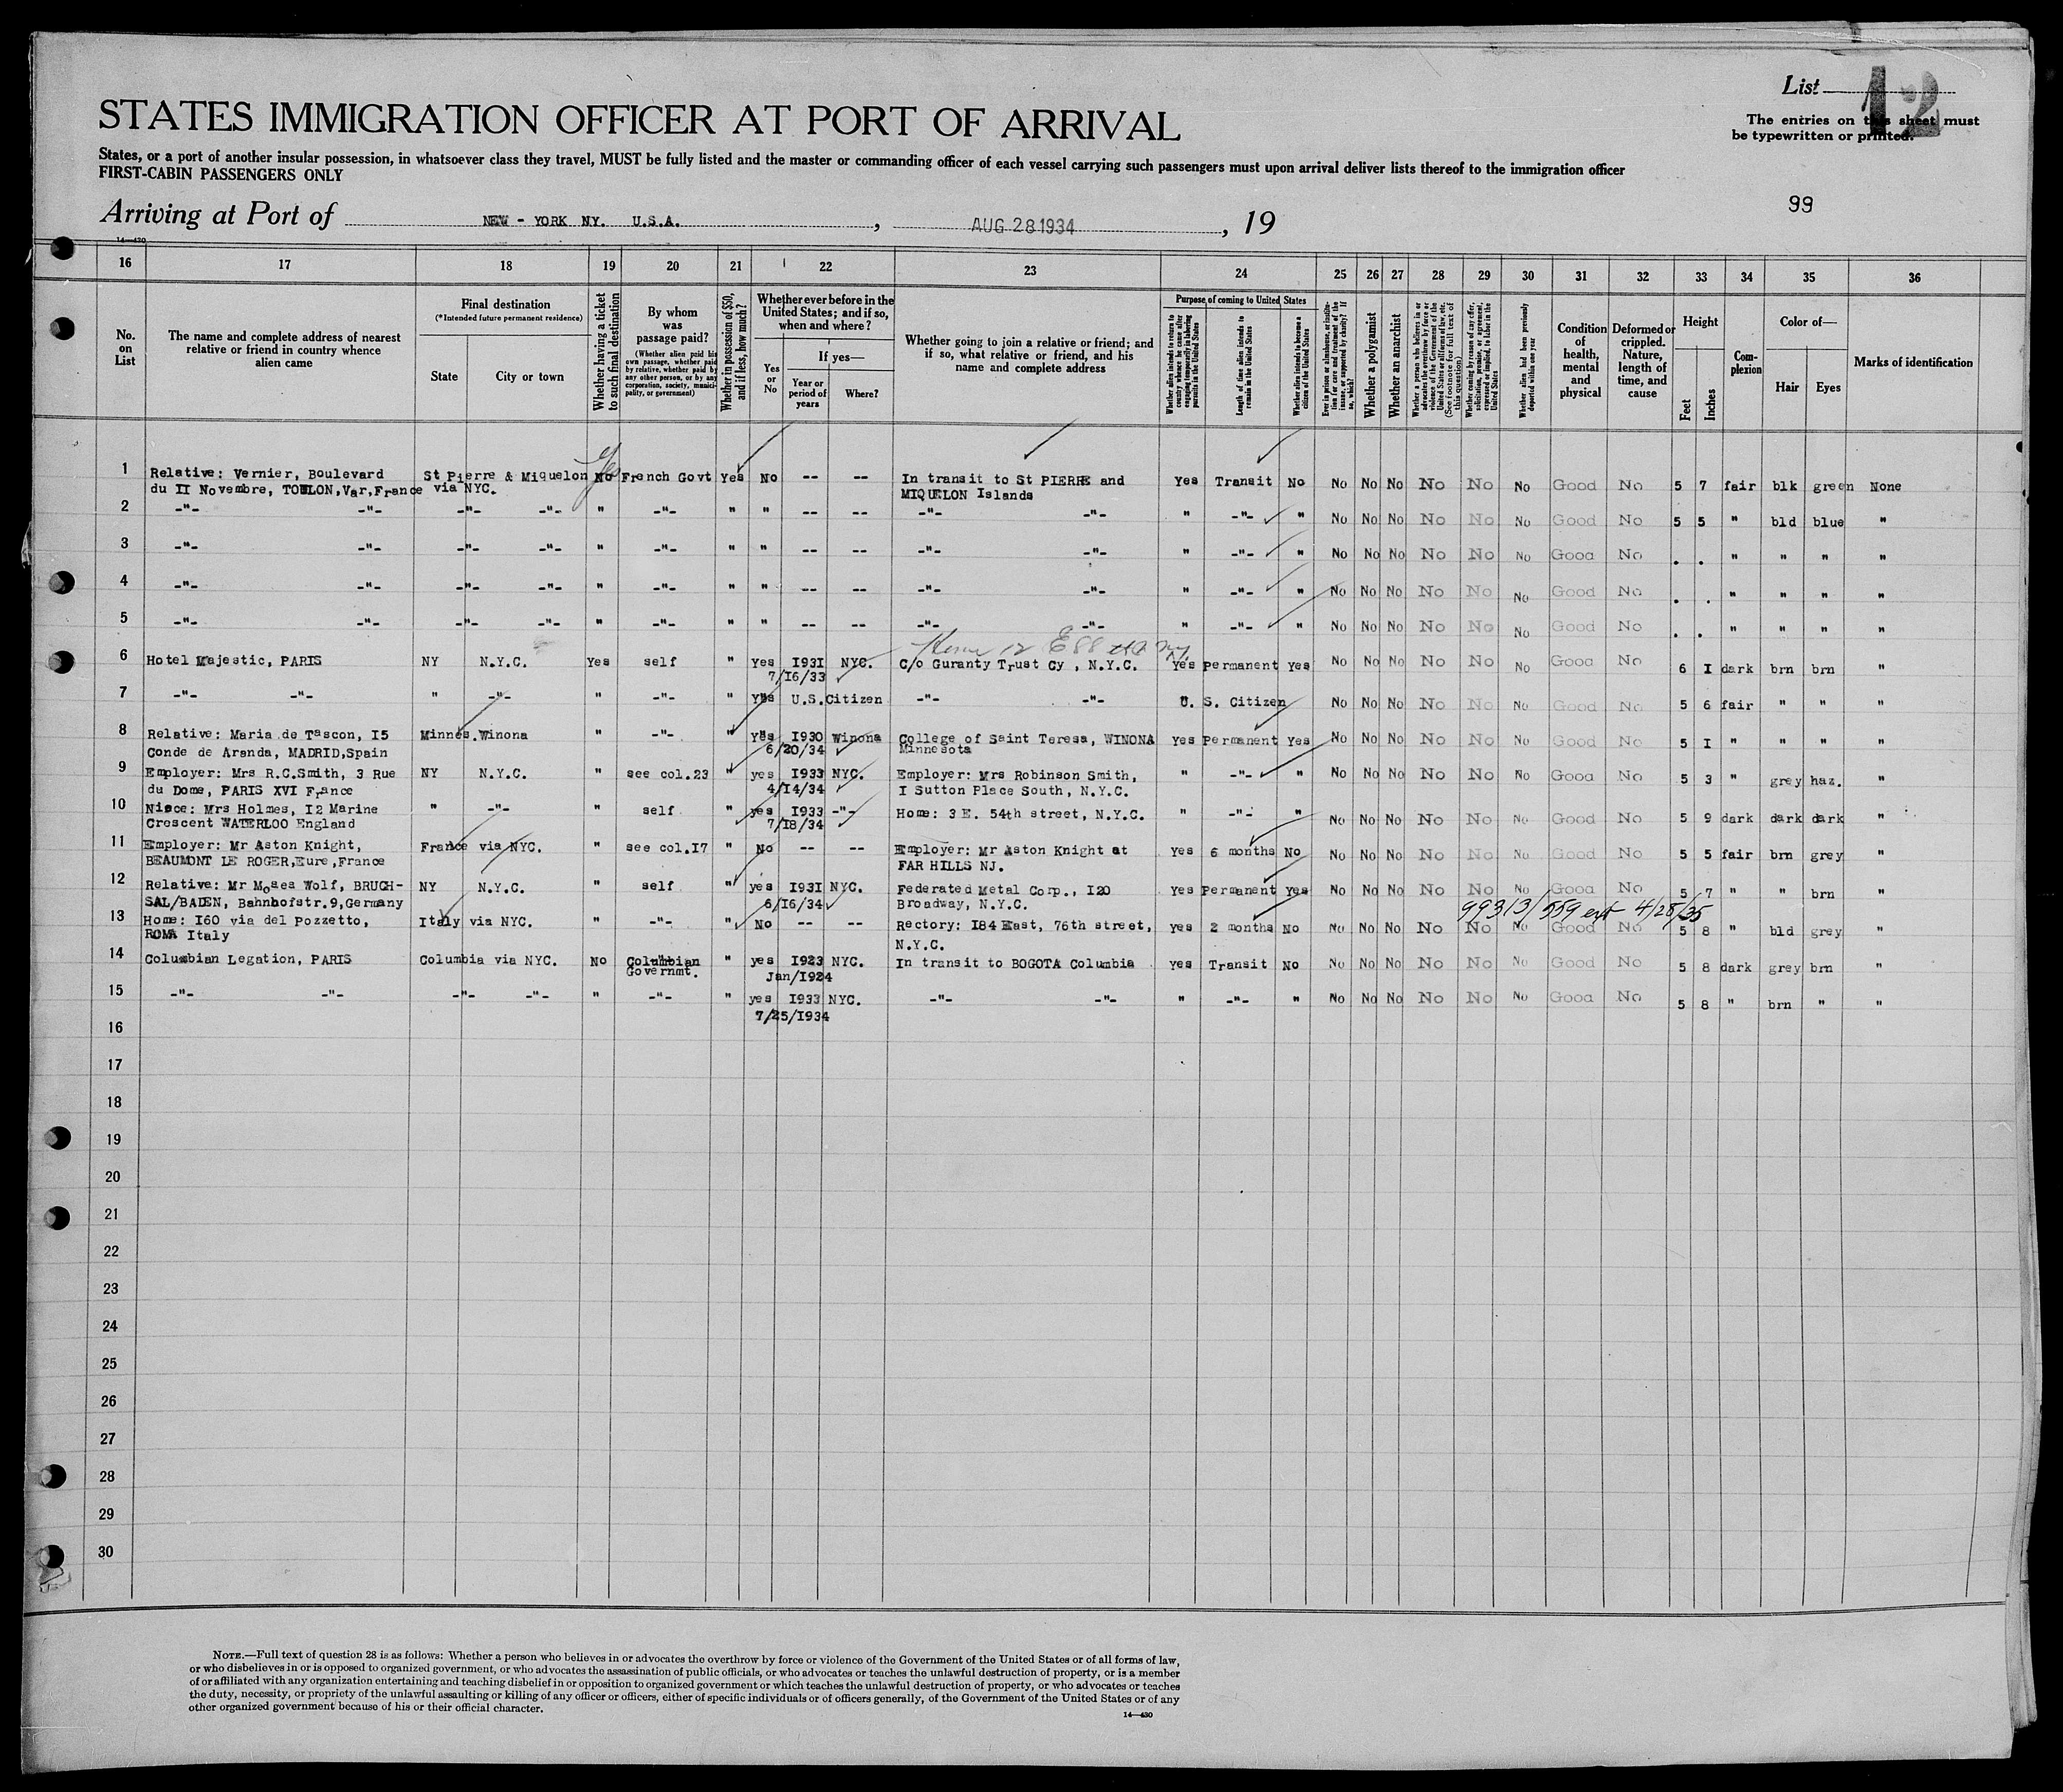 List 12
STATES IMMIGRATION OFFICER AT PORT OF ARRIVAL
The entries on this sheet must
be typewritten or printed.
States, or a port of another insular possession, in whatsoever class they travel, MUST be fully listed and the master or commanding officer of each vessel carrying such passengers must upon arrival deliver lists thereof to the immigration officer
FIRST-CABIN PASSENGERS ONLY
99
Arriving at Port of NEW - YORK NY. U.S.A. , AUG 28 1934 , 19
14—430
16 17 18 19 20 21 22 23 24 25 26 27 28 29 30 31 32 33 34 35 36
No. on List
The name and complete address of nearest relative or friend in country whence alien came
Final destination
(*Intended future permanent residence)
State
City or town
Whether having a ticket to such final destination
By whom was passage paid?
(Whether alien paid his own passage, whether paid by relative, whether paid by any other person, or by any corporation, society, municipality, or government)
Whether in possession of $50, and if less, how much?
Whether ever before in the United States; and if so, when and where?
Yes or No
If yes—
Year or period of years
Where?
Whether going to join a relative or friend; and if so, what relative or friend, and his name and complete address
Purpose of coming to United States
Whether alien intends to return to country whence he came after engaging temporarily in laboring pursuits in the United States
Length of time alien intends to remain in the United States
Whether alien intends to become a citizen of the United States
Ever in prison or almshouse, or institution for care and treatment of the insane, or supported by charity? If so, which?
Whether a polygamist
Whether an anarchist
Whether a person who believes in or advocates the overthrow by force or violence of the Government of the United States or all forms of law, etc. (See footnote for full text of this question)
Whether coming by reason of any offer, solicitation, promise, or agreement, expressed or implied, to labor in the United States
Whether alien had been previously deported within one year
Condition of health, mental and physical
Deformed or crippled. Nature, length of time, and cause
Height
Feet
Inches
Complexion
Color of—
Hair
Eyes
Marks of identification
1 Relative: Vernier, Boulevard St Pierre & Miquelon No Yes French Govt Yes No -- -- In transit to St PIERRE and Yes Transit No No No No No No No Good No 5 7 fair blk green None
du II Novembre, TOULON,Var,France via NYC. MIQUELON Islands
2 -"- -"- -"- -"- " -"- " " -- -- -"- -"- " -"- " No No No No No No Good No 5 5 " bld blue "
3 -"- -"- -"- -"- " -"- " " -- -- -"- -"- " -"- " No No No No No No Good No . . " " " "
4 -"- -"- -"- -"- " -"- " " -- -- -"- -"- " -"- " No No No No No No Good No . . " " " "
5 -"- -"- -"- -"- " -"- " " -- -- -"- -"- " -"- " No No No No No No Good No . . " " " "
6 Hotel Majestic, PARIS NY N.Y.C. Yes self " Yes 1931 NYC. C/o Guranty Trust Cy , N.Y.C. Yes Permanent Yes No No No No No No Good No 6 I dark brn brn "
7/16/33
7 -"- -"- " -"- " -"- " Yes U.S.Citizen -"- -"- U. S. Citizen No No No No No No Good No 5 6 fair " " "
8 Relative: Maria de Tascon, I5 Minnes.Winona " -"- " Yes 1930 Winona College of Saint Teresa, WINONA Yes Permanent Yes No No No No No No Good No 5 I " " " "
Conde de Aranda, MADRID,Spain 6/20/34 Minnesota
9 Employer: Mrs R.C.Smith, 3 Rue NY N.Y.C. " see col.23 " yes 1933 NYC. Employer: Mrs Robinson Smith, " -"- " No No No No No No Good No 5 3 " grey haz. "
du Dome, PARIS XVI France 4/14/34 I Sutton Place South, N.Y.C.
10 Niece: Mrs Holmes, I2 Marine " -"- " self " yes 1933 -"- Home: 3 E. 54th street, N.Y.C. " -"- " No No No No No No Good No 5 9 dark dark dark "
Crescent WATERLOO England 7/18/34
11 Employer: Mr Aston Knight, France via NYC. " see col.I7 " No -- -- Employer: Mr Aston Knight at Yes 6 months No No No No No No No Good No 5 5 fair brn grey "
BEAUMONT LE ROGER,Eure,France FAR HILLS NJ.
12 Relative: Mr Moses Wolf, BRUCH- NY N.Y.C. " self " yes 1931 NYC. Federated Metal Corp., I20 Yes Permanent Yes No No No No No No Good No 5 7 " " brn "
SAL/BADEN, Bahnhofstr.9,Germany 6/16/34 Broadway, N.Y.C. 99313/559 ext 4/28/35
13 Home: I60 via del Pozzetto, Italy via NYC. " -"- " No -- -- Rectory: I84 East, 76th street, yes 2 months No No No No No No No Good No 5 8 " bld grey "
ROMA Italy N.Y.C.
14 Columbian Legation, PARIS Columbia via NYC. No Columbian " yes 1923 NYC. In transit to BOGOTA Columbia Yes Transit No No No No No No No Good No 5 8 dark grey brn "
Governmt. Jan/1924
15 -"- -"- -"- -"- " -"- " yes 1933 NYC. -"- -"- " -"- " No No No No No No Good No 5 8 " brn " "
7/25/1934
16
17
18
19
20
21
22
23
24
25
26
27
28
29
30
NOTE.—Full text of question 28 is as follows: Whether a person who believes in or advocates the overthrow by force or violence of the Government of the United States or of all forms of law,
or who disbelieves in or is opposed to organized government, or who advocates the assassination of public officials, or who advocates or teaches the unlawful destruction of property, or is a member
of or affiliated with any organization entertaining and teaching disbelief in or opposition to organized government or which teaches the unlawful destruction of property, or who advocates or teaches
the duty, necessity, or propriety of the unlawful assaulting or killing of any officer or officers, either of specific individuals or of officers generally, of the Government of the United States or of any
other organized government because of his or their official character.
14—430